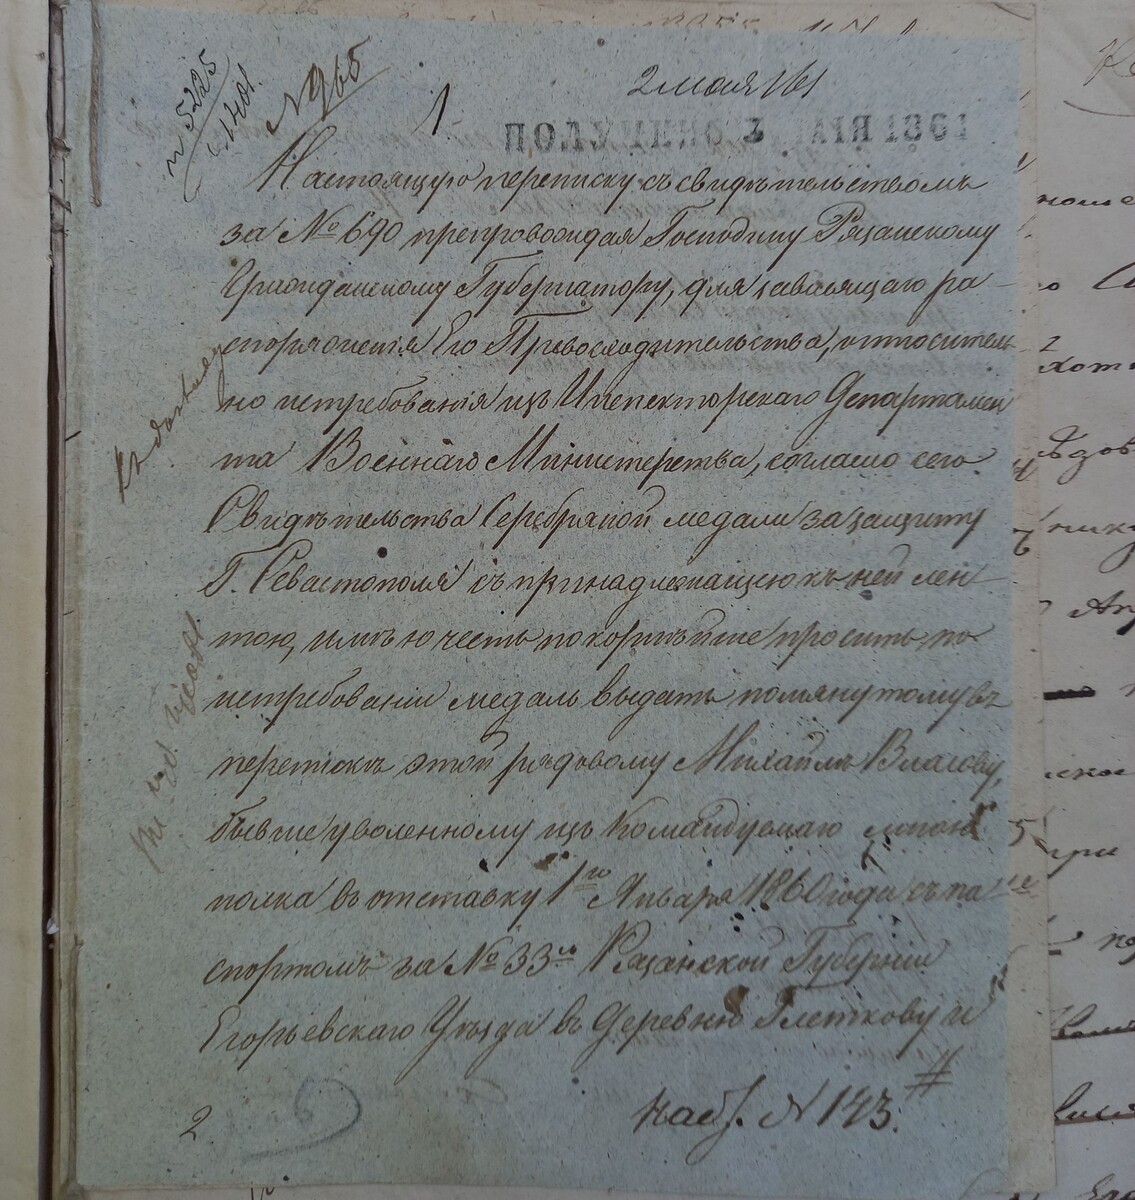 № 965
1
2 мая 1861
ПОЛУЧЕНО 2 МАЯ 1861
Настоящую переписку съ свидѣтельствомъ
за № 690 препровождая Господину Рязанскому
Гражданскому Губернатору, для зависящаго ра-
споряженія Его Превосходительства, относитель-
но истребованія изъ Инспекторскаго Департамен
та Военнаго Министерства, согласно сего
Свидѣтельства Серебряной медали за защиту
Г. Севастополя съ принадлежащею къ ней лен
тою, имѣю честь покорнѣйше просить, по
истребованіи медаль выдать помянутому въ
перепискѣ этой рядовому Михайлѣ Власову,
бывше уволенному изъ командуемаго мною
полка въ отставку 1го Января 1860 года съ па
спортомъ за № 33м Рязанской Губерніи
Егорьевскаго Уѣзда въ Деревню Глеткову и
2
наст. № 143.